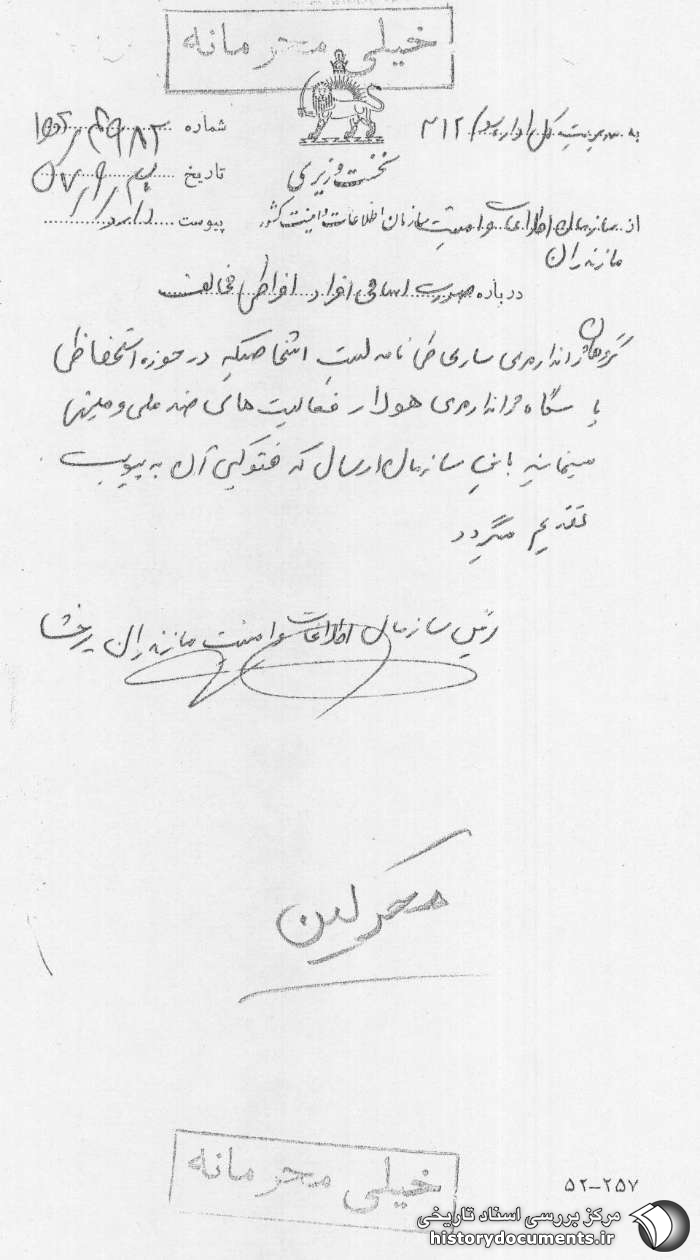 خیلی محرمانه
به مدیریت کل اداره سوم ۳۱۲
شماره
نخست وزیری
تاریخ ۵۷/۹/
از سازمان اطلاعات و امنیت سازمان اطلاعات و امنیت کشور
پیوست دارد
مازندران
درباره صورت اسامی افراد افراطی مخالف
گروهان ژاندارمری ساری طی نامه لیست اشخاصیکه در حوزه استحفاظی
پاسگاه ژاندارمری هولار فعالیت های ضد ملی و میهنی
مینمایند باین سازمان ارسال که فتوکپی آن به پیوست
تقدیم میگردد
رئیس سازمان اطلاعات و امنیت مازندران
محرکین
خیلی محرمانه
۵۲-۲۵۷
مرکز بررسی اسناد تاریخی
historydocuments.ir